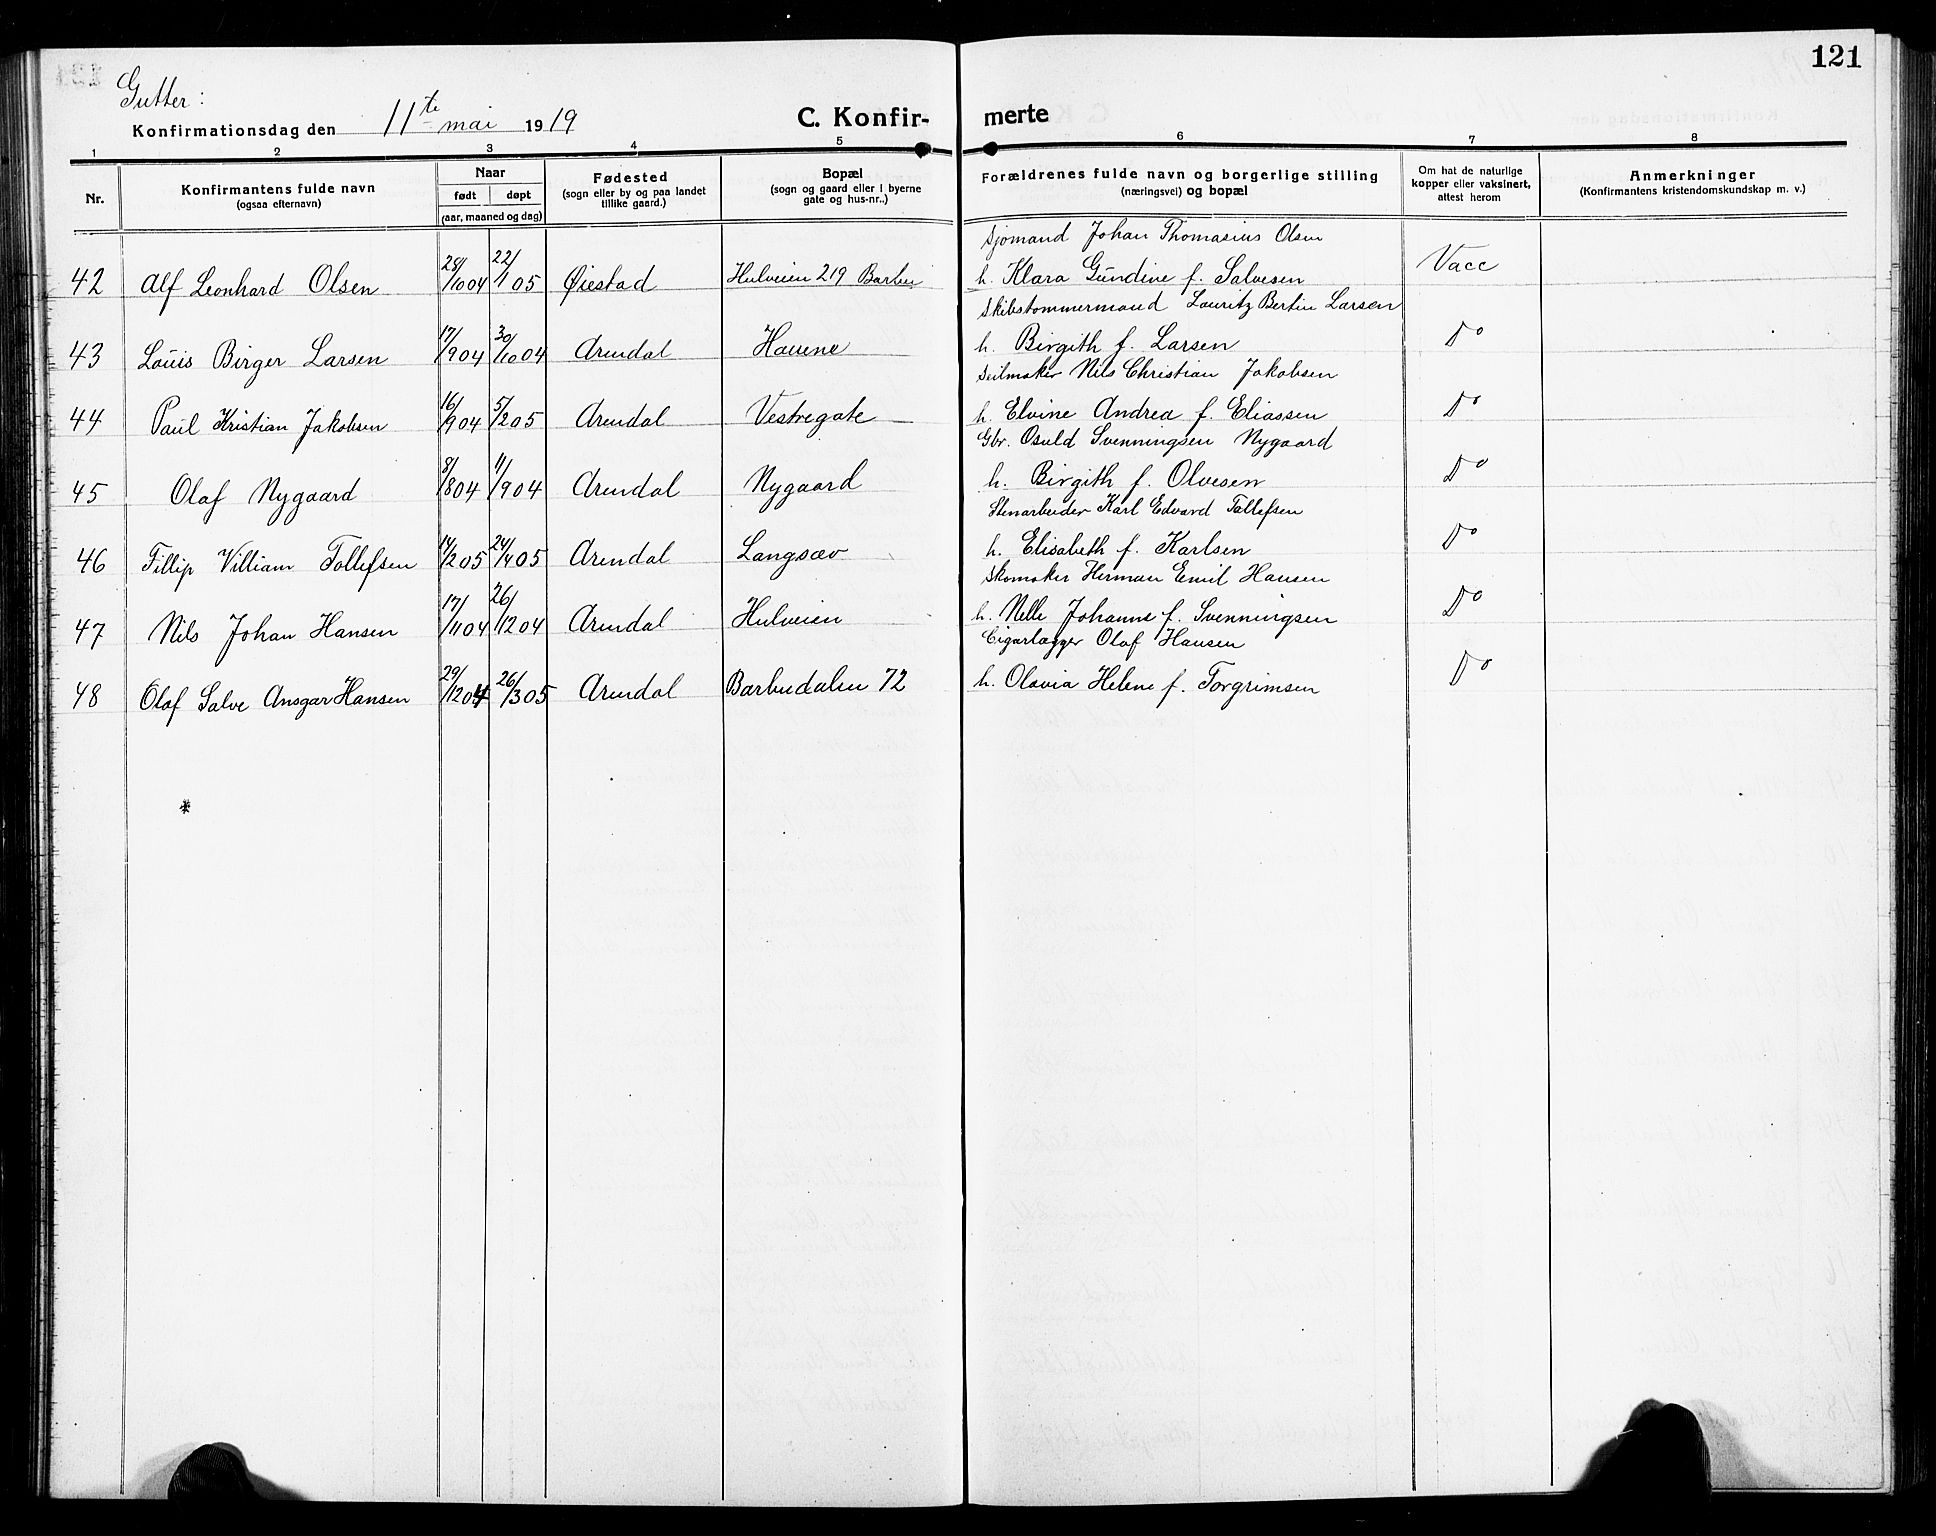 121
Gutter:
Konfirmationsdag den 11te mai 1919
C. Konfirmerte
1 2 3 4 5 6 7 8
Nr.
Konfirmantens fulde navn
(ogsaa efternavn)
Naar
født døpt
(aar, maaned og dag)
Fødested
(sogn eller by og paa landet
tillike gaard.)
Bopæl
(sogn og gaard eller i byerne
gate og hus-nr.,)
Forældrenes fulde navn og borgerlige stilling
(næringsvei) og bopæl
Om hat de naturlige
kopper eller vaksinert,
attest herom
Anmerkninger
(Konfirmantens kristendomskundskap m. v.)
Sjømand Johan Thomasius Olsen
42 Alf Leonhard Olsen 28/10 04 22/1 05 Øiestad Hulveien 219 Barbu h. Klara Gundine f. Salvesen Vacc
Skibstømmermand Lauritz Bertin Larsen
43 Louis Birger Larsen 17/9 04 30/10 04 Arendal Havene h. Birgith f. Larsen Do
Seilmaker Nils Christian Jakobsen
44 Paul Kristian Jakobsen 16/9 04 5/2 05 Arendal Vestregate h. Elvine Andrea f. Eliassen Do
Gbr. Osuld Svenningsen Nygaard
45 Olaf Nygaard 8/8 04 11/9 04 Arendal Nygaard h. Birgith f. Olvesen Do
Stenarbeider Karl Edvard Tollefsen
46 Fillip Villiam Tollefsen 14/2 05 24/4 05 Arendal Langsæv h. Elisabeth f. Karlsen Do
Skomaker Herman Emil Hansen
47 Nils Johan Hansen 17/11 04 26/12 04 Arendal Hulveien h. Nelle Johanne f. Svenningsen Do
Cigarlægger Olaf Hansen
48 Olaf Salve Ansgar Hansen 29/12 04 26/3 05 Arendal Barbudalen 72 h. Olavia Helene f. Torgrimsen Do